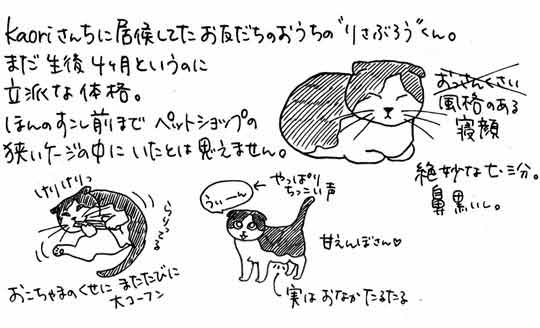 Kaoriさんちに居候してたお友だちのおうちの"りさぶろう"くん。
まだ生後4ヶ月というのに
立派な体格。
ほんのすこし前までペットショップの
狭いケージの中にいたとは思えません。
おっさんくさい
風格のある
寝顔
絶妙な七・三分。
鼻黒いし。
けりけりっ
らりってる
おこちゃまのくせにまたたびに
大コーフン
うぃーん
やっぱり
ちっこい声
甘えんぼさん♡
実はおなかたるたる